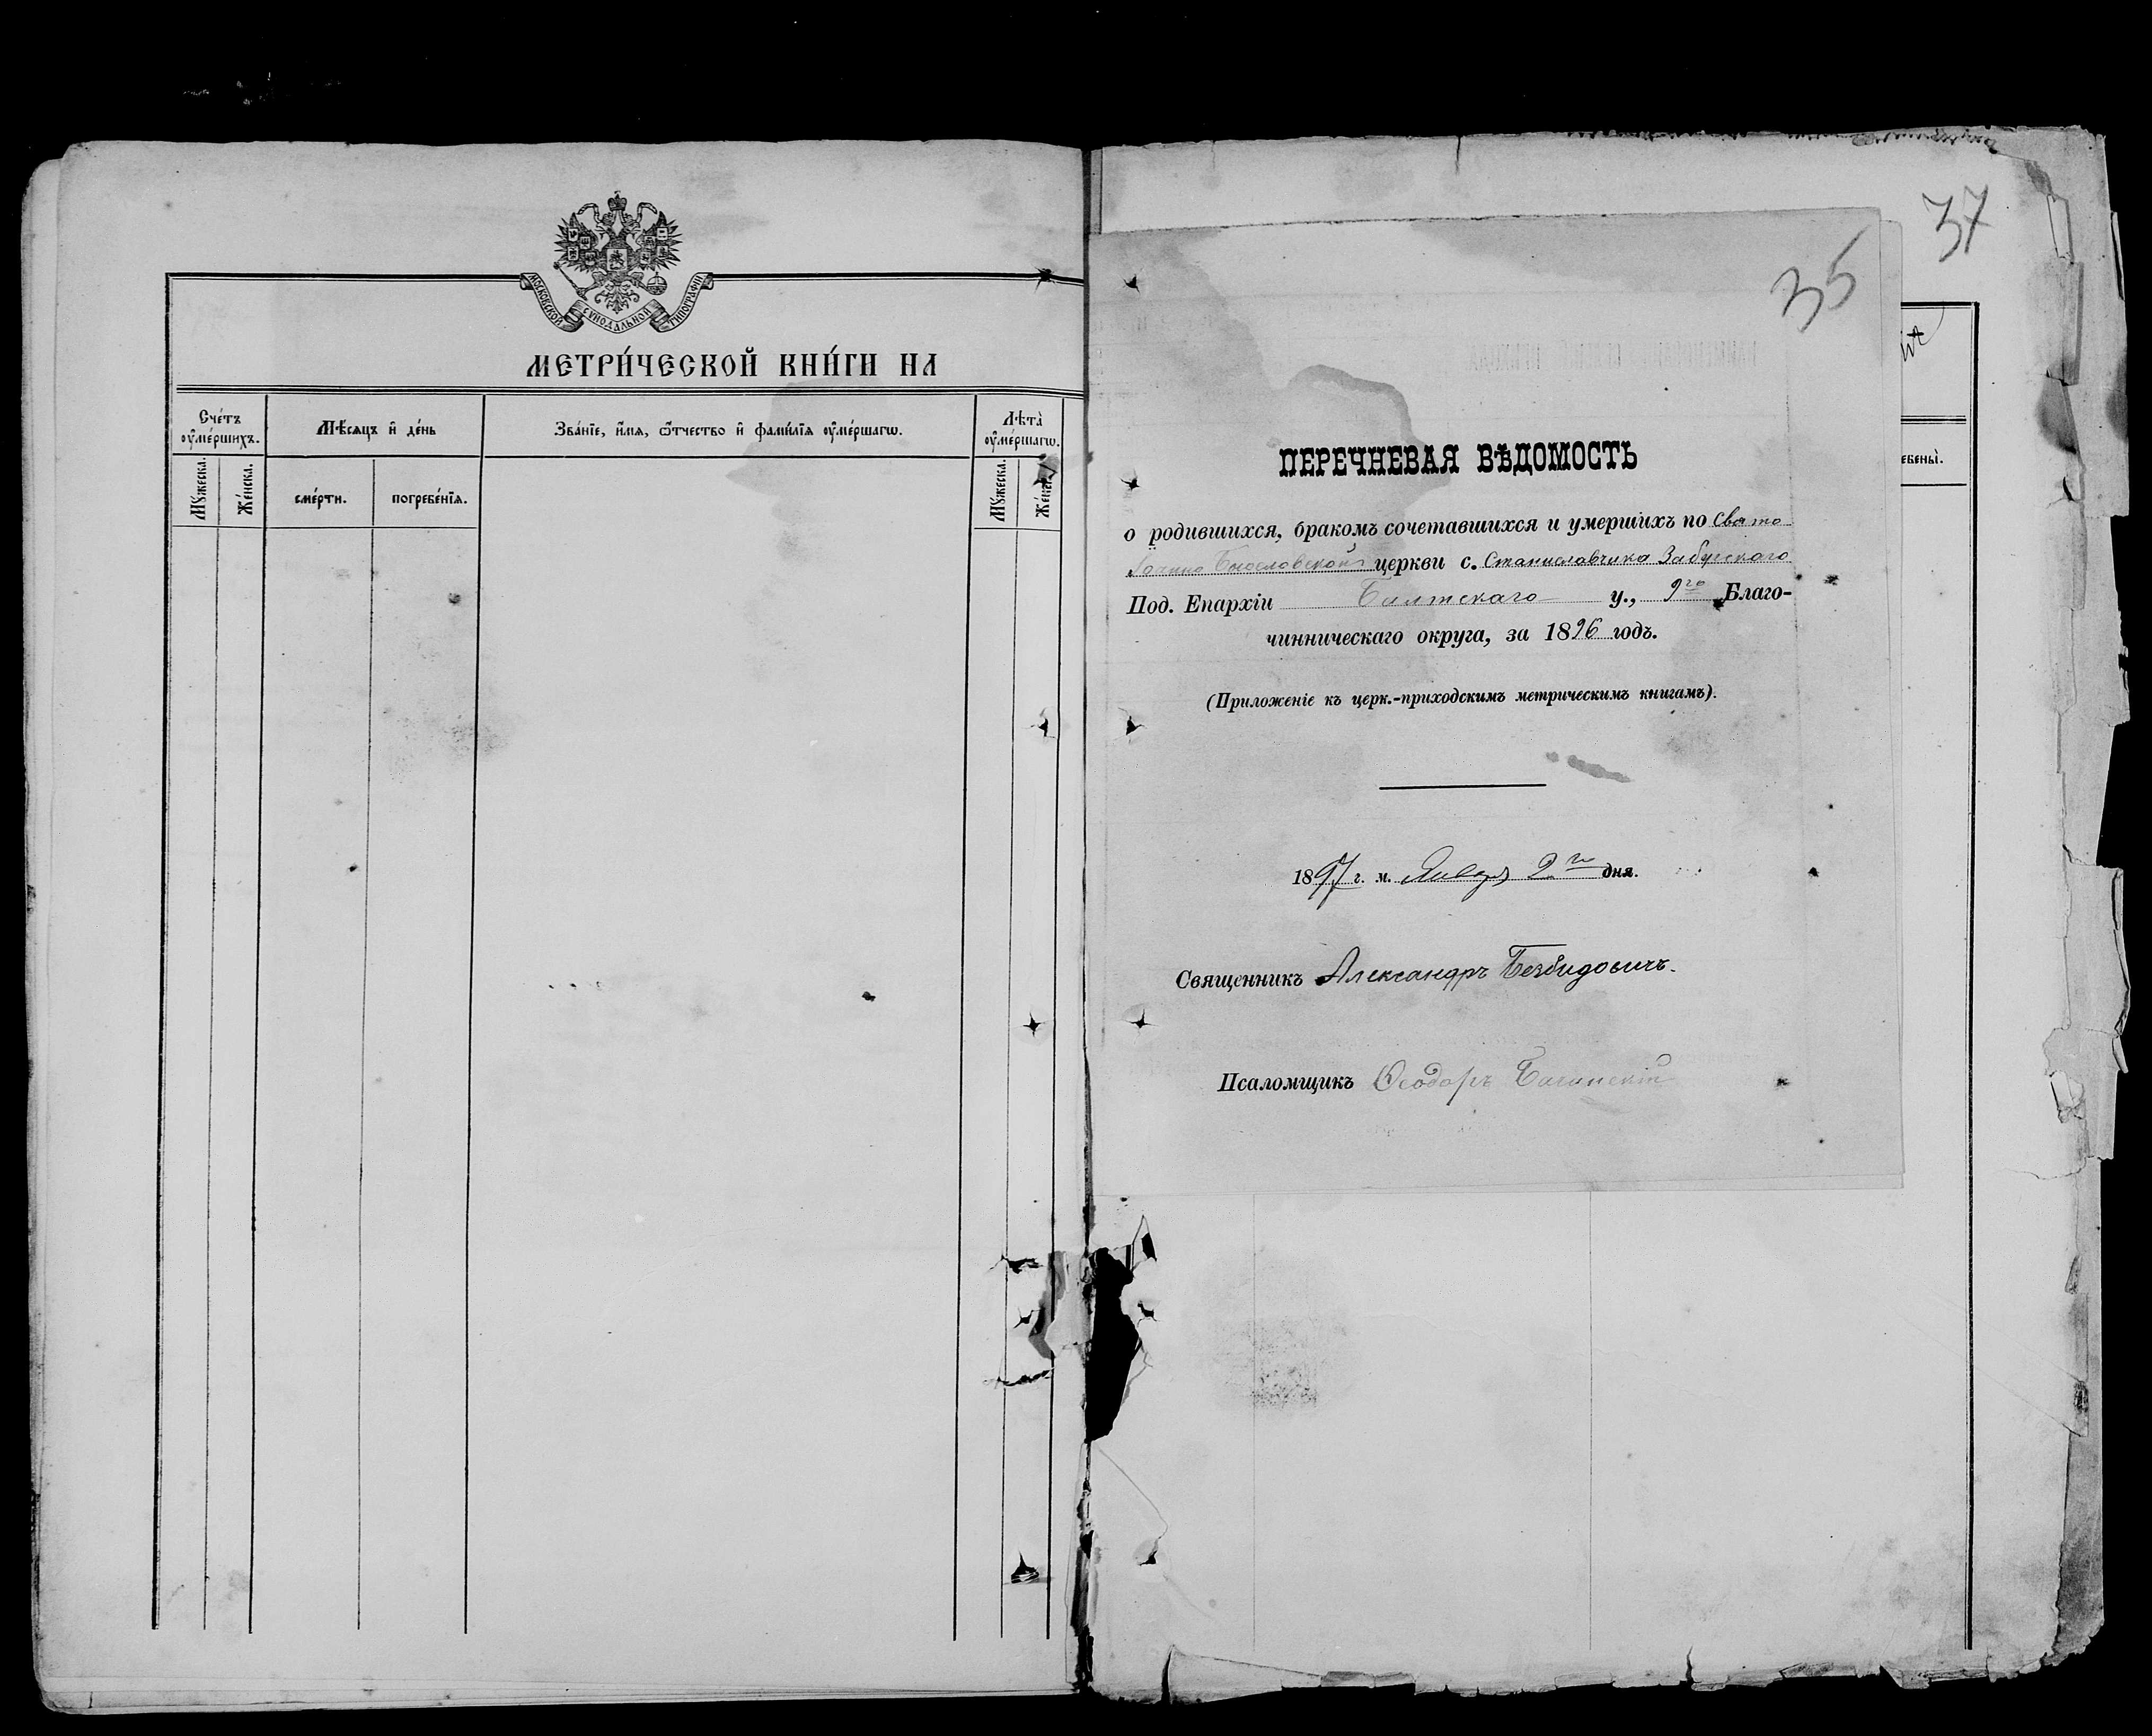 МОСКОВСКОЙ СУНОДАЛЬНОЙ ТИПОГРАФІИ
МЕТРИ́ЧЕСКОЙ КНИ́ГИ НА
Сче́тъ оу҆ме́ршихъ.
Мѣ́сяцъ и҆ де́нь
Зва́нїе, и҆́мя, ѻ҆́тчество и҆ фами́лїя оу҆ме́ршагѡ.
Лѣта̀ оу҆ме́ршагѡ.
Мꙋ́жеска.
Же́нска.
сме́рти.
погребе́нїя.
Мꙋ́жеска.
Же́нска.
37
35
ебены̀.
ПЕРЕЧНЕВАЯ ВѢДОМОСТЬ
о родившихся, бракомъ сочетавшихся и умершихъ по Свято
Іоанно Богословской церкви с. Станиславчика Забугскаго
Под. Епархіи Балтскаго у., 9го Благо-
чинническаго округа, за 1896 годъ.
(Приложеніе къ церк.-приходскимъ метрическимъ книгамъ).
1897 г. м. Январь 2го дня.
Священникъ Александръ
Псаломщикъ Ѳеодоръ